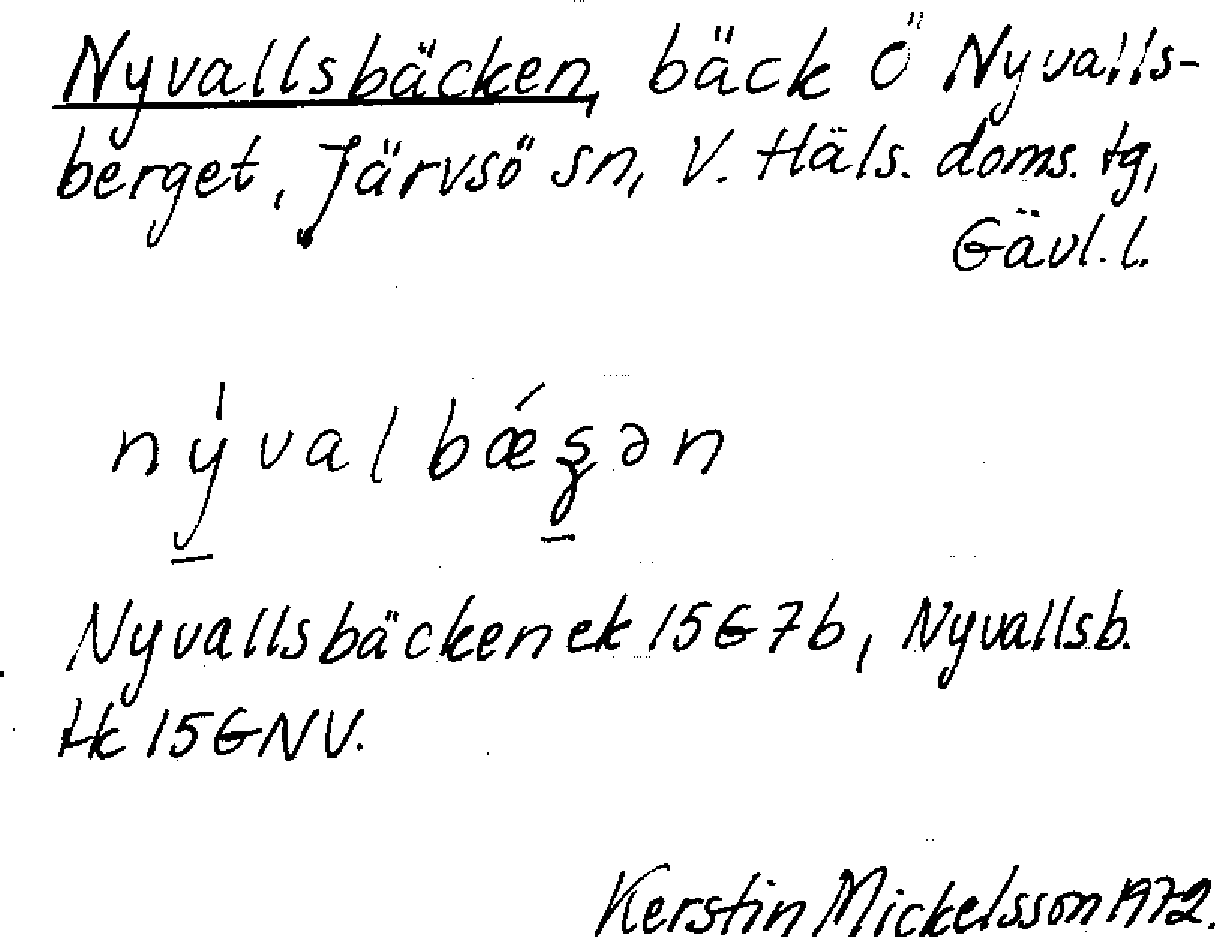 Nyvallsbäcken, bäck Ö Nyvalls-
berget, Järvsö sn, V. Häls. doms. tg,
Gävl. l.
nývalbǽʂən
Nyvallsbäcken ek 15G7b, Nyvallsb.
tk 15GNV.
Kerstin Mickelsson 1972.